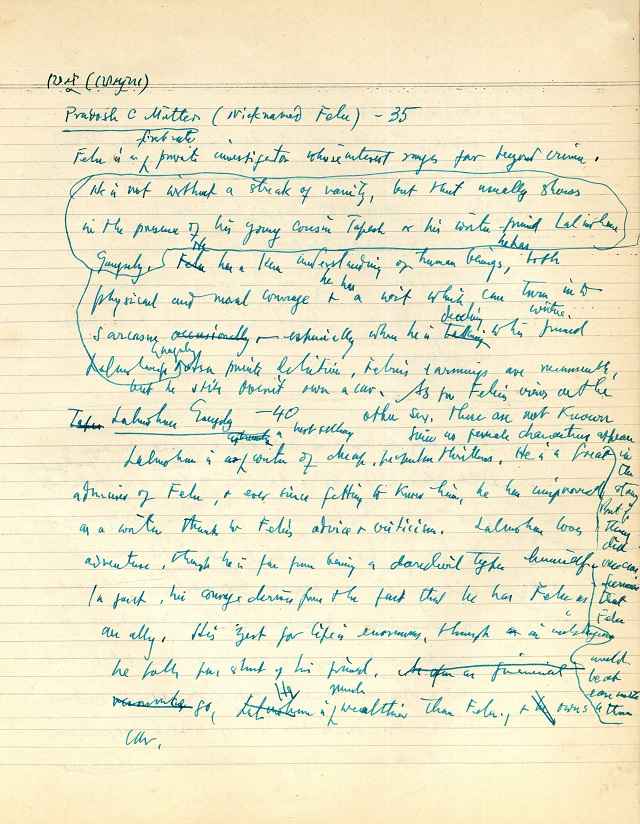 Pradosh C Mitter (nicknamed Felu) - 35
Felu is a first rate private investigator whose interest ranges far beyond crime.
He is not without a streak of vanity, but that usually shows
in the presence of his young cousin Tapesh or his writer friend Lalmohan
Ganguly. He has a keen understanding of human beings, he has both
physical and moral courage + a wit which can turn into
sarcasm occasionally, especially when he is dealing with his writer friend
Lalmohan Ganguly. As a private detective, Felu's earnings are reasonable,
but he still doesn't own a car. As for Felu's views on the
other sex, these are not known
since no female characters appear
in the story
but if they did
one can
that
Felu
would
be at
ease with
them
Lalmohan Ganguly - 40
Lalmohan is a best selling writer of cheap, popular thrillers. He is a great
admirer of Felu, + ever since getting to know him, he has improved
as a writer thanks to Felu's advice + criticism. Lalmohan loves
adventure, though he is far from being a daredevil type himself.
In fact, his courage derives from the fact that he has Felu as
an ally. His zest for life is enormous, though in
he falls far short of his friend. As far as financial
go, He is much wealthier than Felu, + owns a
car.